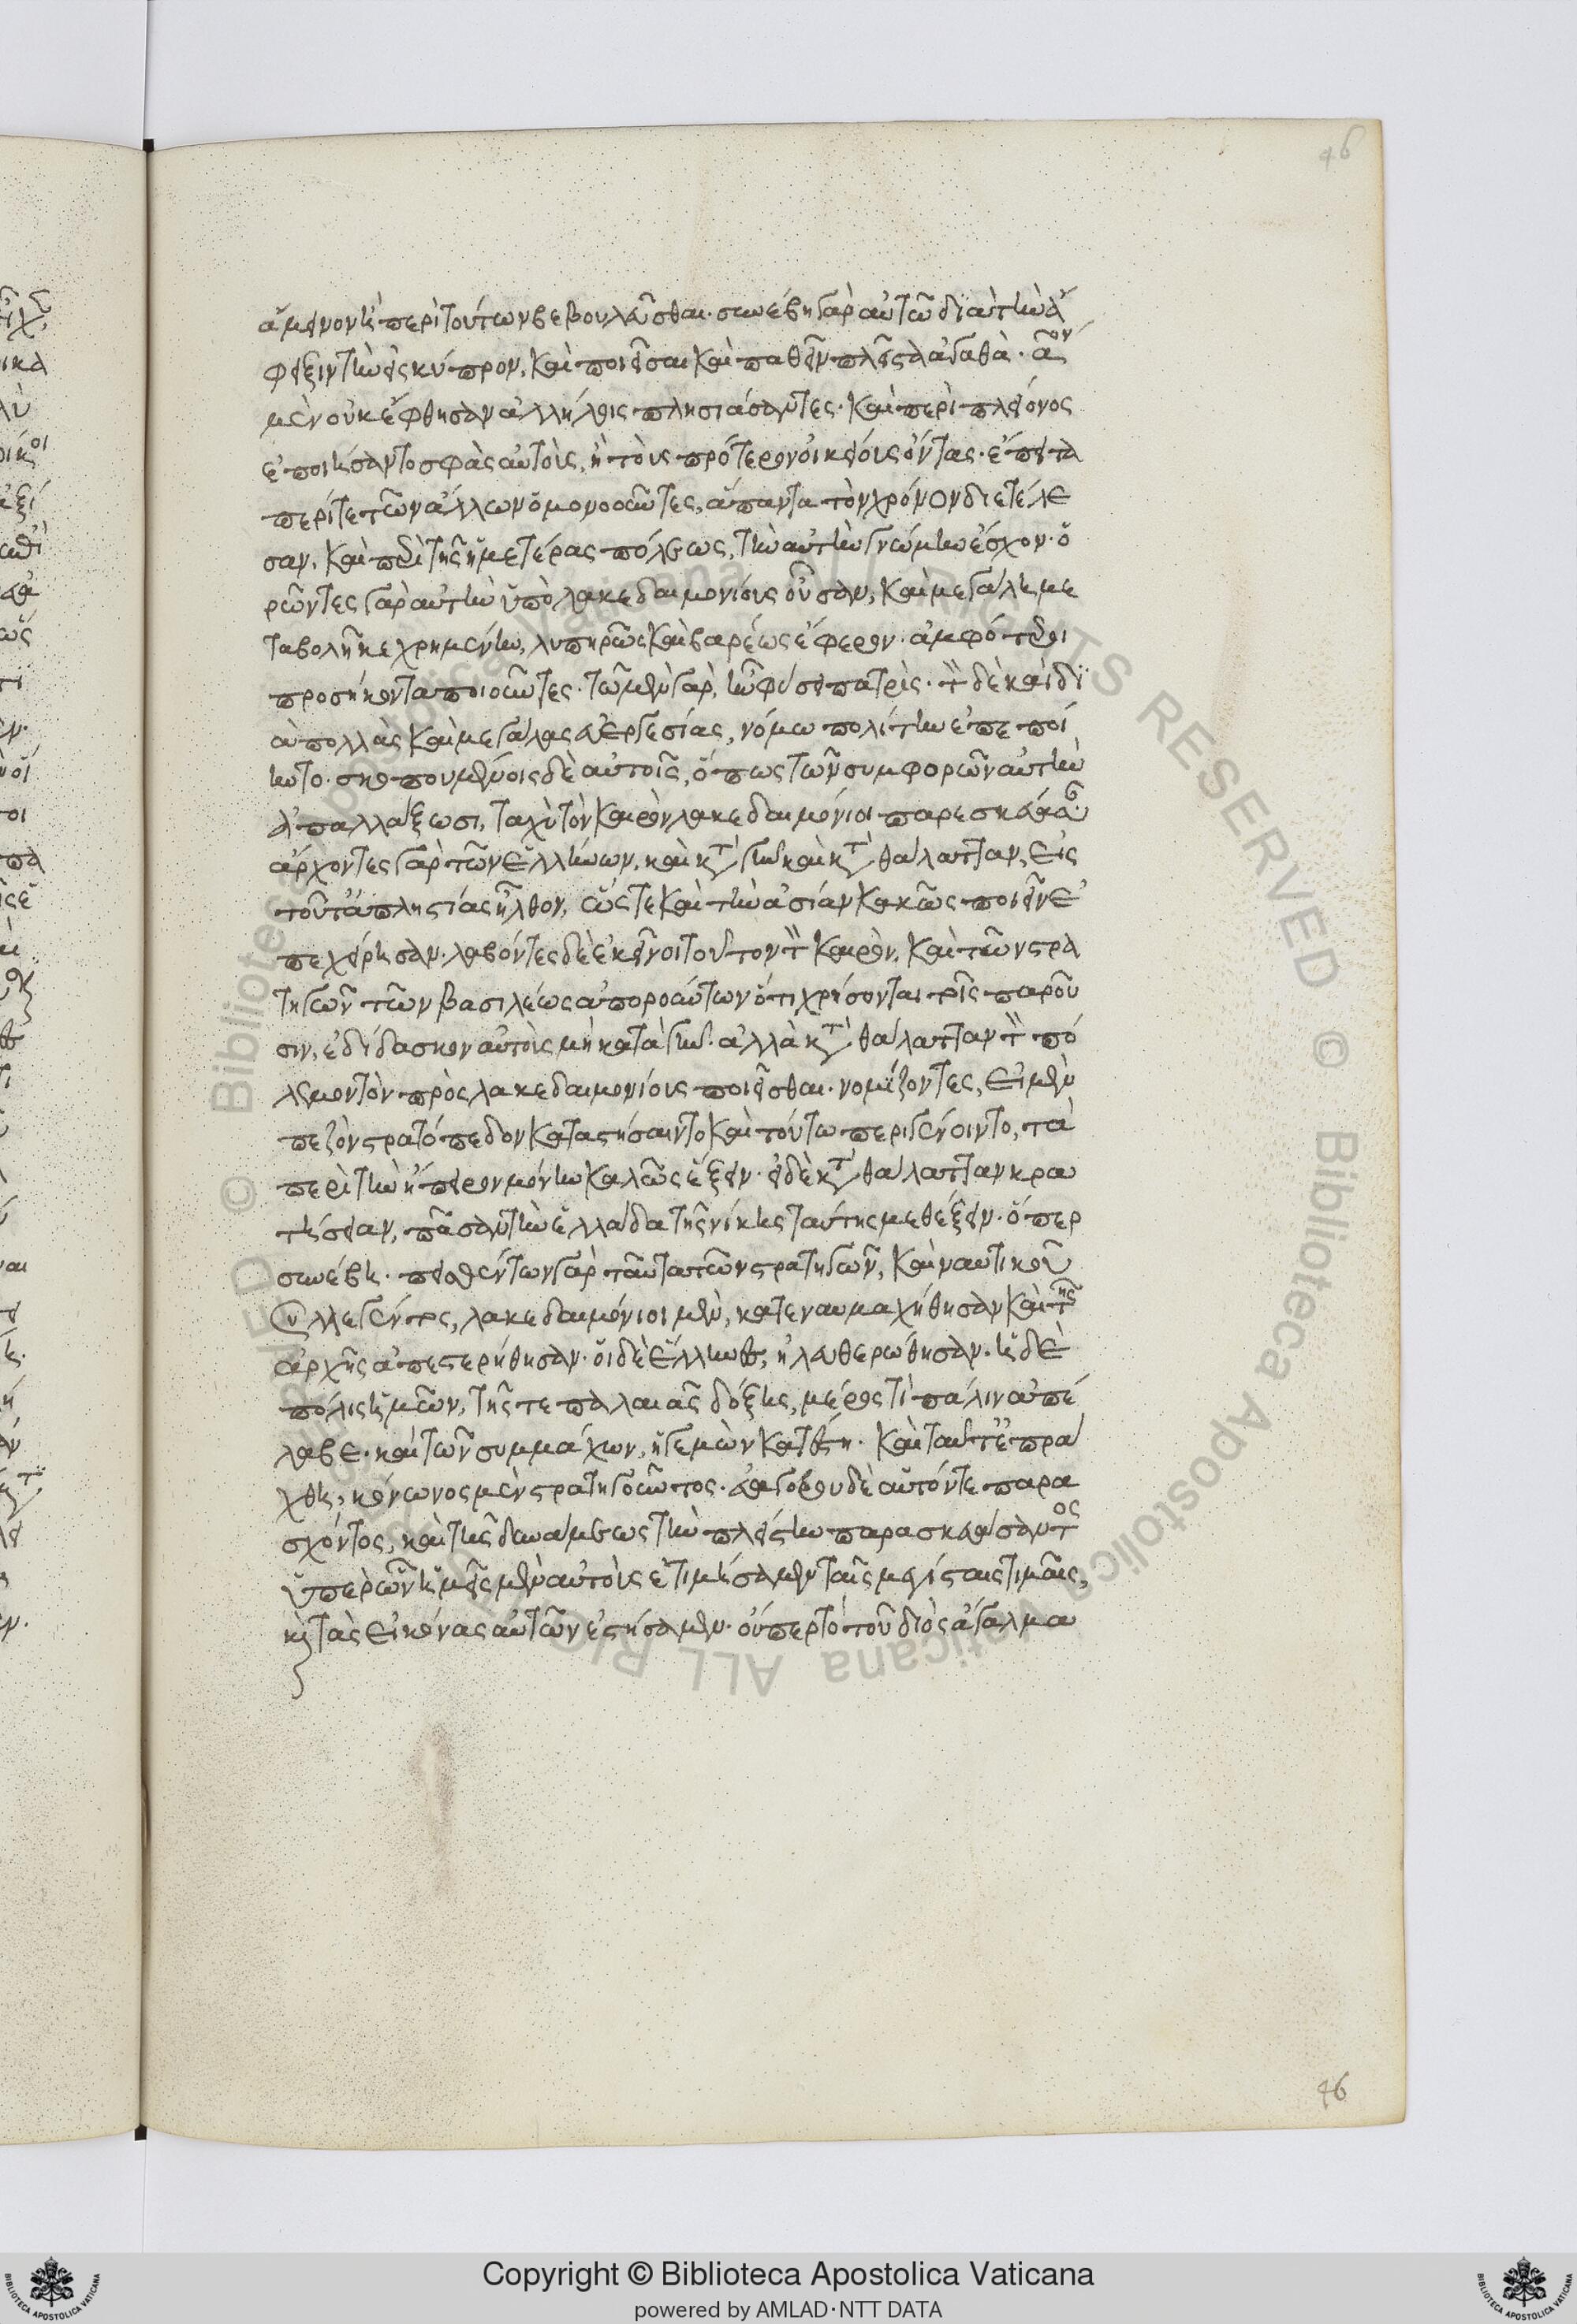 46
ἄμεινον ἢ περὶ τούτων βεβουλεῦσθαι. συνέβη γὰρ αὐτῶ διὰ τὴν ἄ
φιξιν τὴν εἰς κύπρον, καὶ ποιῆσαι καὶ παθεῖν πλεῖστα ἀγαθά.
μὲν οὐκ ἔφθησαν ἀλλήλοις πλησιάσαντες. καὶ περὶ πλείονος
ἐποιήσαντο σφᾶς αὐτοὺς, ἢ τοὺς πρότερον οἰκείους ὄντας. ἔπειτα
περί τε τῶν ἄλλων ὁμονοοῦντες, ἅπαντα τὸν χρόνον διετέλε
σαν. καὶ περὶ τῆς ἡμετέρας πόλεως, τὴν αὐτὴν γνώμην ἔσχον. ὁ
ρῶντες γὰρ αὐτὴν ὑπὸ λακεδαιμονίοις οὖσαν, καὶ μεγάλη με
ταβολῆ κεχρημένην, λυπηρῶς καὶ βαρέως ἔφερον. ἀμφότεροι
προσήκοντα ποιοῦντες. τῶ μὲν γὰρ, ἦν φύσει πατρίς. τὸν δὲ καὶ δι
ὰ πολλὰς καὶ μεγάλας εὐεργεσίας, νόμω πολίτην ἐπεποί
ηντο. σκοπουμένοις δὲ αὐτοῖς, ὅπως τῶν συμφορῶν αὐτὴν
ἀπαλλάξωσι, ταχὺ τὸν καιρὸν λακεδαιμόνιοι παρεσκεύασαν
ἄρχοντες γὰρ τῶν ἑλλήνων, καὶ κατὰ γῆν καὶ κατὰ θάλατταν, εἰς
τοῦτ' ἀπληστίας ἦλθον, ὥστε καὶ τὴν ἀσίαν κακῶς ποιεῖν ἐ
πεχείρησαν. λαβόντες δὲ ἐκεῖνοι τοῦτον τὸν καιρὸν, καὶ τῶν στρα
τηγῶν τῶν βασιλέως ἀπορούντων ὅτι χρήσονται τοῖς παροῦ
σιν, ἐδίδασκον αὐτοὺς μὴ κατὰ γῆν. ἀλλὰ κατὰ θάλατταν τὸν πό
λεμον τὸν πρὸς λακεδαιμονίους ποιεῖσθαι. νομίζοντες, εἰ μὲν
πεζὸν στρατόπεδον καταστήσαιντο καὶ τούτω περιγένοιντο, τὰ
περὶ τὴν ἤπειρον μόνην καλῶς ἕξειν. εἰ δὲ κατὰ θάλατταν κρα
τήσειαν, πᾶσαν τὴν ἑλλάδα τῆς νίκης ταύτης μεθέξειν. ὅπερ
συνέβη. πεισθέντων γὰρ ταῦτα τῶν στρατηγῶν, καὶ ναυτικοῦ
συλλεγέντος, λακεδαιμόνιοι μὲν, κατεναυμαχήθησαν καὶ τῆς
ἀρχῆς ἀπεστερήθησαν. οἱ δὲ ἕλληνες, ἠλευθερώθησαν. ἡ δὲ
πόλις ἡμῶν, τῆς τε παλαιᾶς δόξης, μέρος τὶ πάλιν ἀπέ
λαβε. καὶ τῶν συμμάχων, ἡγεμὼν κατέστη. καὶ ταῦτ' ἐπρά
χθη, κόνωνος μὲν στρατηγοῦντος. εὐαγόρου δὲ αὑτόν τε παρα
σχόντος, καὶ τῆς δυνάμεως τὴν πλείστην παρασκευάσαντος
ὑπὲρ ὧν ἡμεῖς μὲν αὐτοὺς ἐτιμήσαμεν ταῖς μεγίσταις τιμαῖς,
καὶ τὰς εἰκόνας αὐτῶν ἐστήσαμεν. οὗπερ τὸ τοῦ διὸς ἄγαλμα
46
Copyright © Biblioteca Apostolica Vaticana
powered by AMLAD·NTT DATA